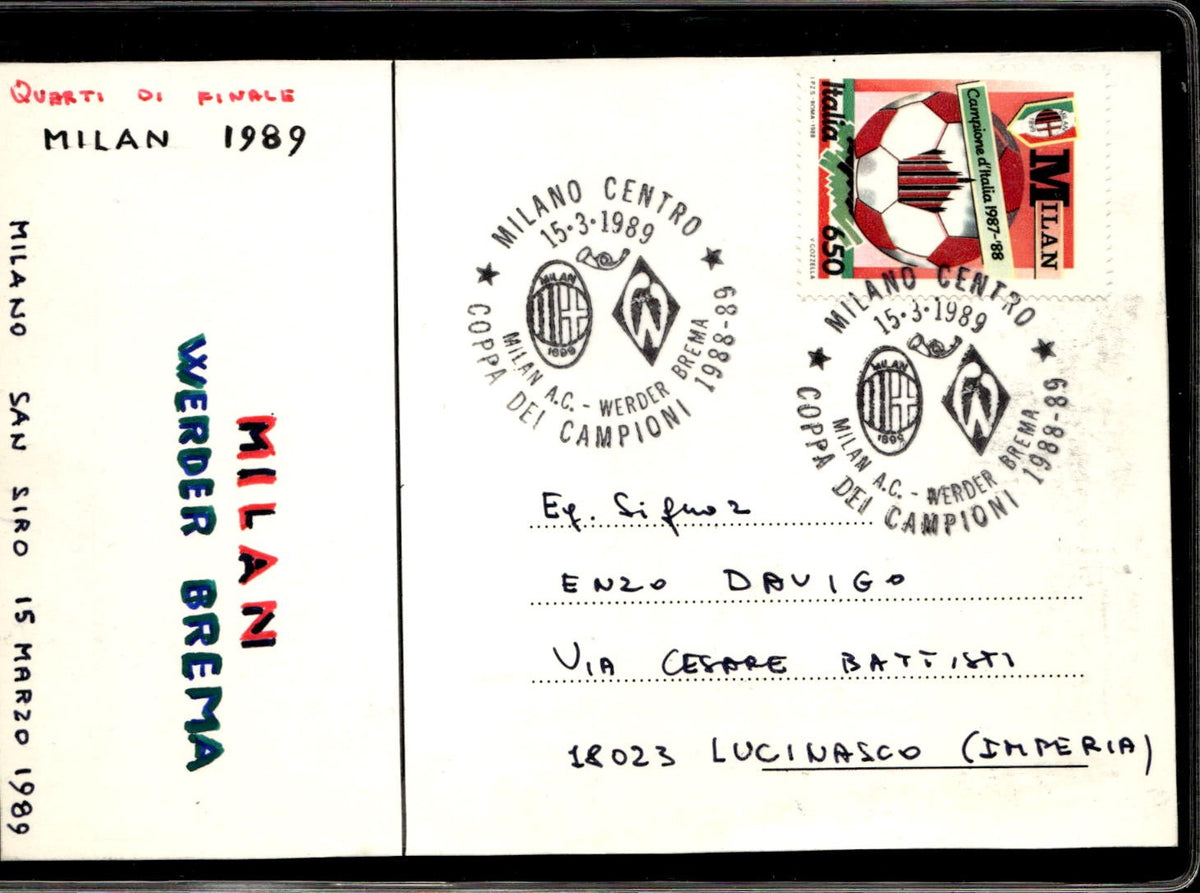 QUARTI DI FINALE
MILAN 1989
MILANO SAN SIRO 15 MARZO 1989
MILAN
WERDER BREMA
MILANO CENTRO
15·3·1989
MILAN
1899
MILAN A.C. - WERDER BREMA
COPPA DEI CAMPIONI 1988-89
Italia 650
Campione d'Italia 1987-'88
MILAN
I.P.Z.S. - ROMA - 1988
V. GOZZELLA
MILANO CENTRO
15·3·1989
MILAN
1899
MILAN A.C. - WERDER BREMA
COPPA DEI CAMPIONI 1988-89
Eg. Signor
ENZO DAVIGO
VIA CESARE BATTISTI
18023 LUCINASCO (IMPERIA)